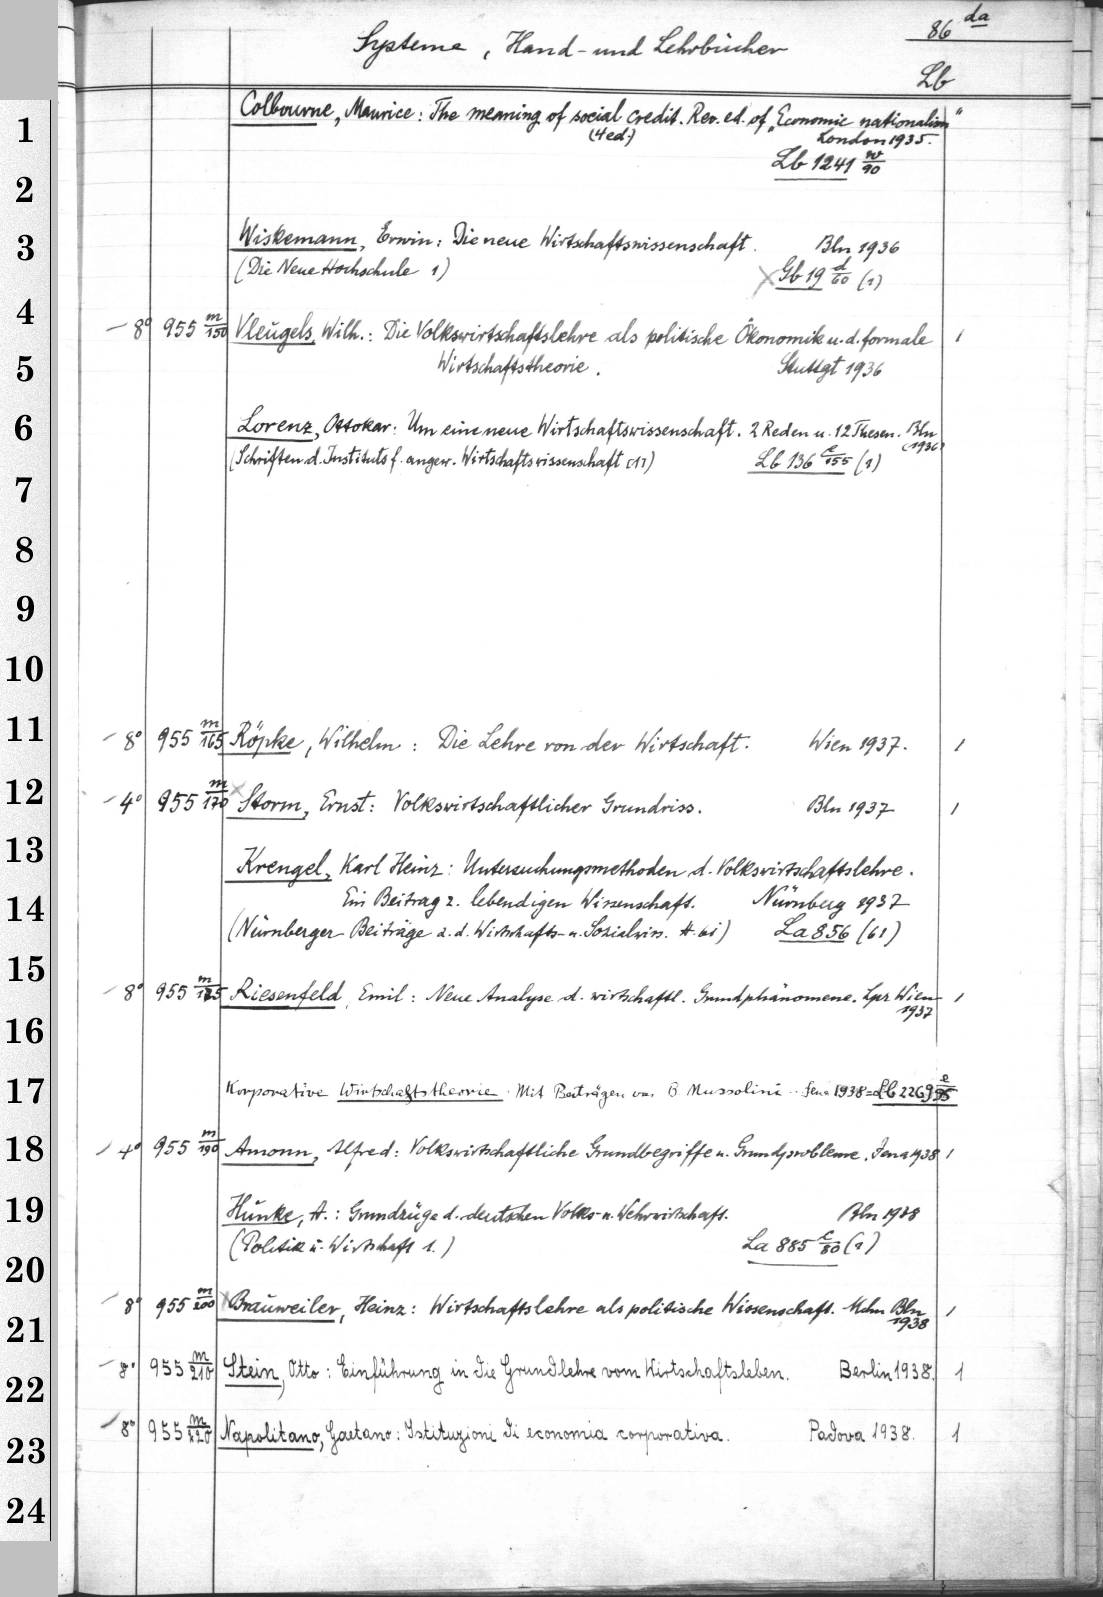 86 da
Systeme, Hand- und Lehrbücher
Lb
1
Colbourne, Maurice: The meaning of social credit. Rev. ed. of „Economic nationalism“
(4 ed.) London 1935.
Lb 1241 w/90
2
3
Wiskemann, Erwin: Die neue Wirtschaftswissenschaft. Bln 1936
(Die Neue Hochschule 1) Gb 19 d/60 (1)
4
8° 955 m/150 Vleugels, Wilh.: Die Volkswirtschaftslehre als politische Ökonomik u. d. formale 1
5
Wirtschaftstheorie. Stuttgt 1936
6
Lorenz, Ottokar: Um eine neue Wirtschaftswissenschaft. 2 Reden u. 12 Thesen. Bln
(1936)
(Schriften d. Instituts f. angew. Wirtschaftswissenschaft [1]) Lb 136 e/155 (1)
7
8
9
10
11
8° 955 m/165 Röpke, Wilhelm: Die Lehre von der Wirtschaft. Wien 1937. 1
12
4° 955 m/170 Storm, Ernst: Volkswirtschaftlicher Grundriss. Bln 1937 1
13
Krengel, Karl Heinz: Untersuchungsmethoden d. Volkswirtschaftslehre.
14
Ein Beitrag z. lebendigen Wissenschaft. Nürnberg 1937
(Nürnberger Beiträge z. d. Wirtschafts- u. Sozialwiss. H. 61) La 856 (61)
15
8° 955 m/185 Riesenfeld, Emil: Neue Analyse d. wirtschaftl. Grundphänomene. Lpz Wien 1
1937
16
17
Korporative Wirtschaftstheorie. Mit Beiträgen von B Mussolini .. Jena 1938 = Lb 2269 e/95
18
4° 955 m/190 Amonn, Alfred: Volkswirtschaftliche Grundbegriffe u. Grundprobleme. Jena 1938 1
19
Hunke, H.: Grundzüge d. deutschen Volks- u. Wehrwirtschaft. Bln 1938
(Politik u. Wirtschaft 1.) La 885 c/80 (1)
20
8° 955 m/200 Brauweiler, Heinz: Wirtschaftslehre als politische Wissenschaft. Mchn Bln 1
1938
21
8° 955 m/210 Stein, Otto: Einführung in die Grundlehre vom Wirtschaftsleben. Berlin 1938. 1
22
8° 955 m/220 Napolitano, Gaetano: Istituzioni di economia corporativa. Padova 1938. 1
23
24